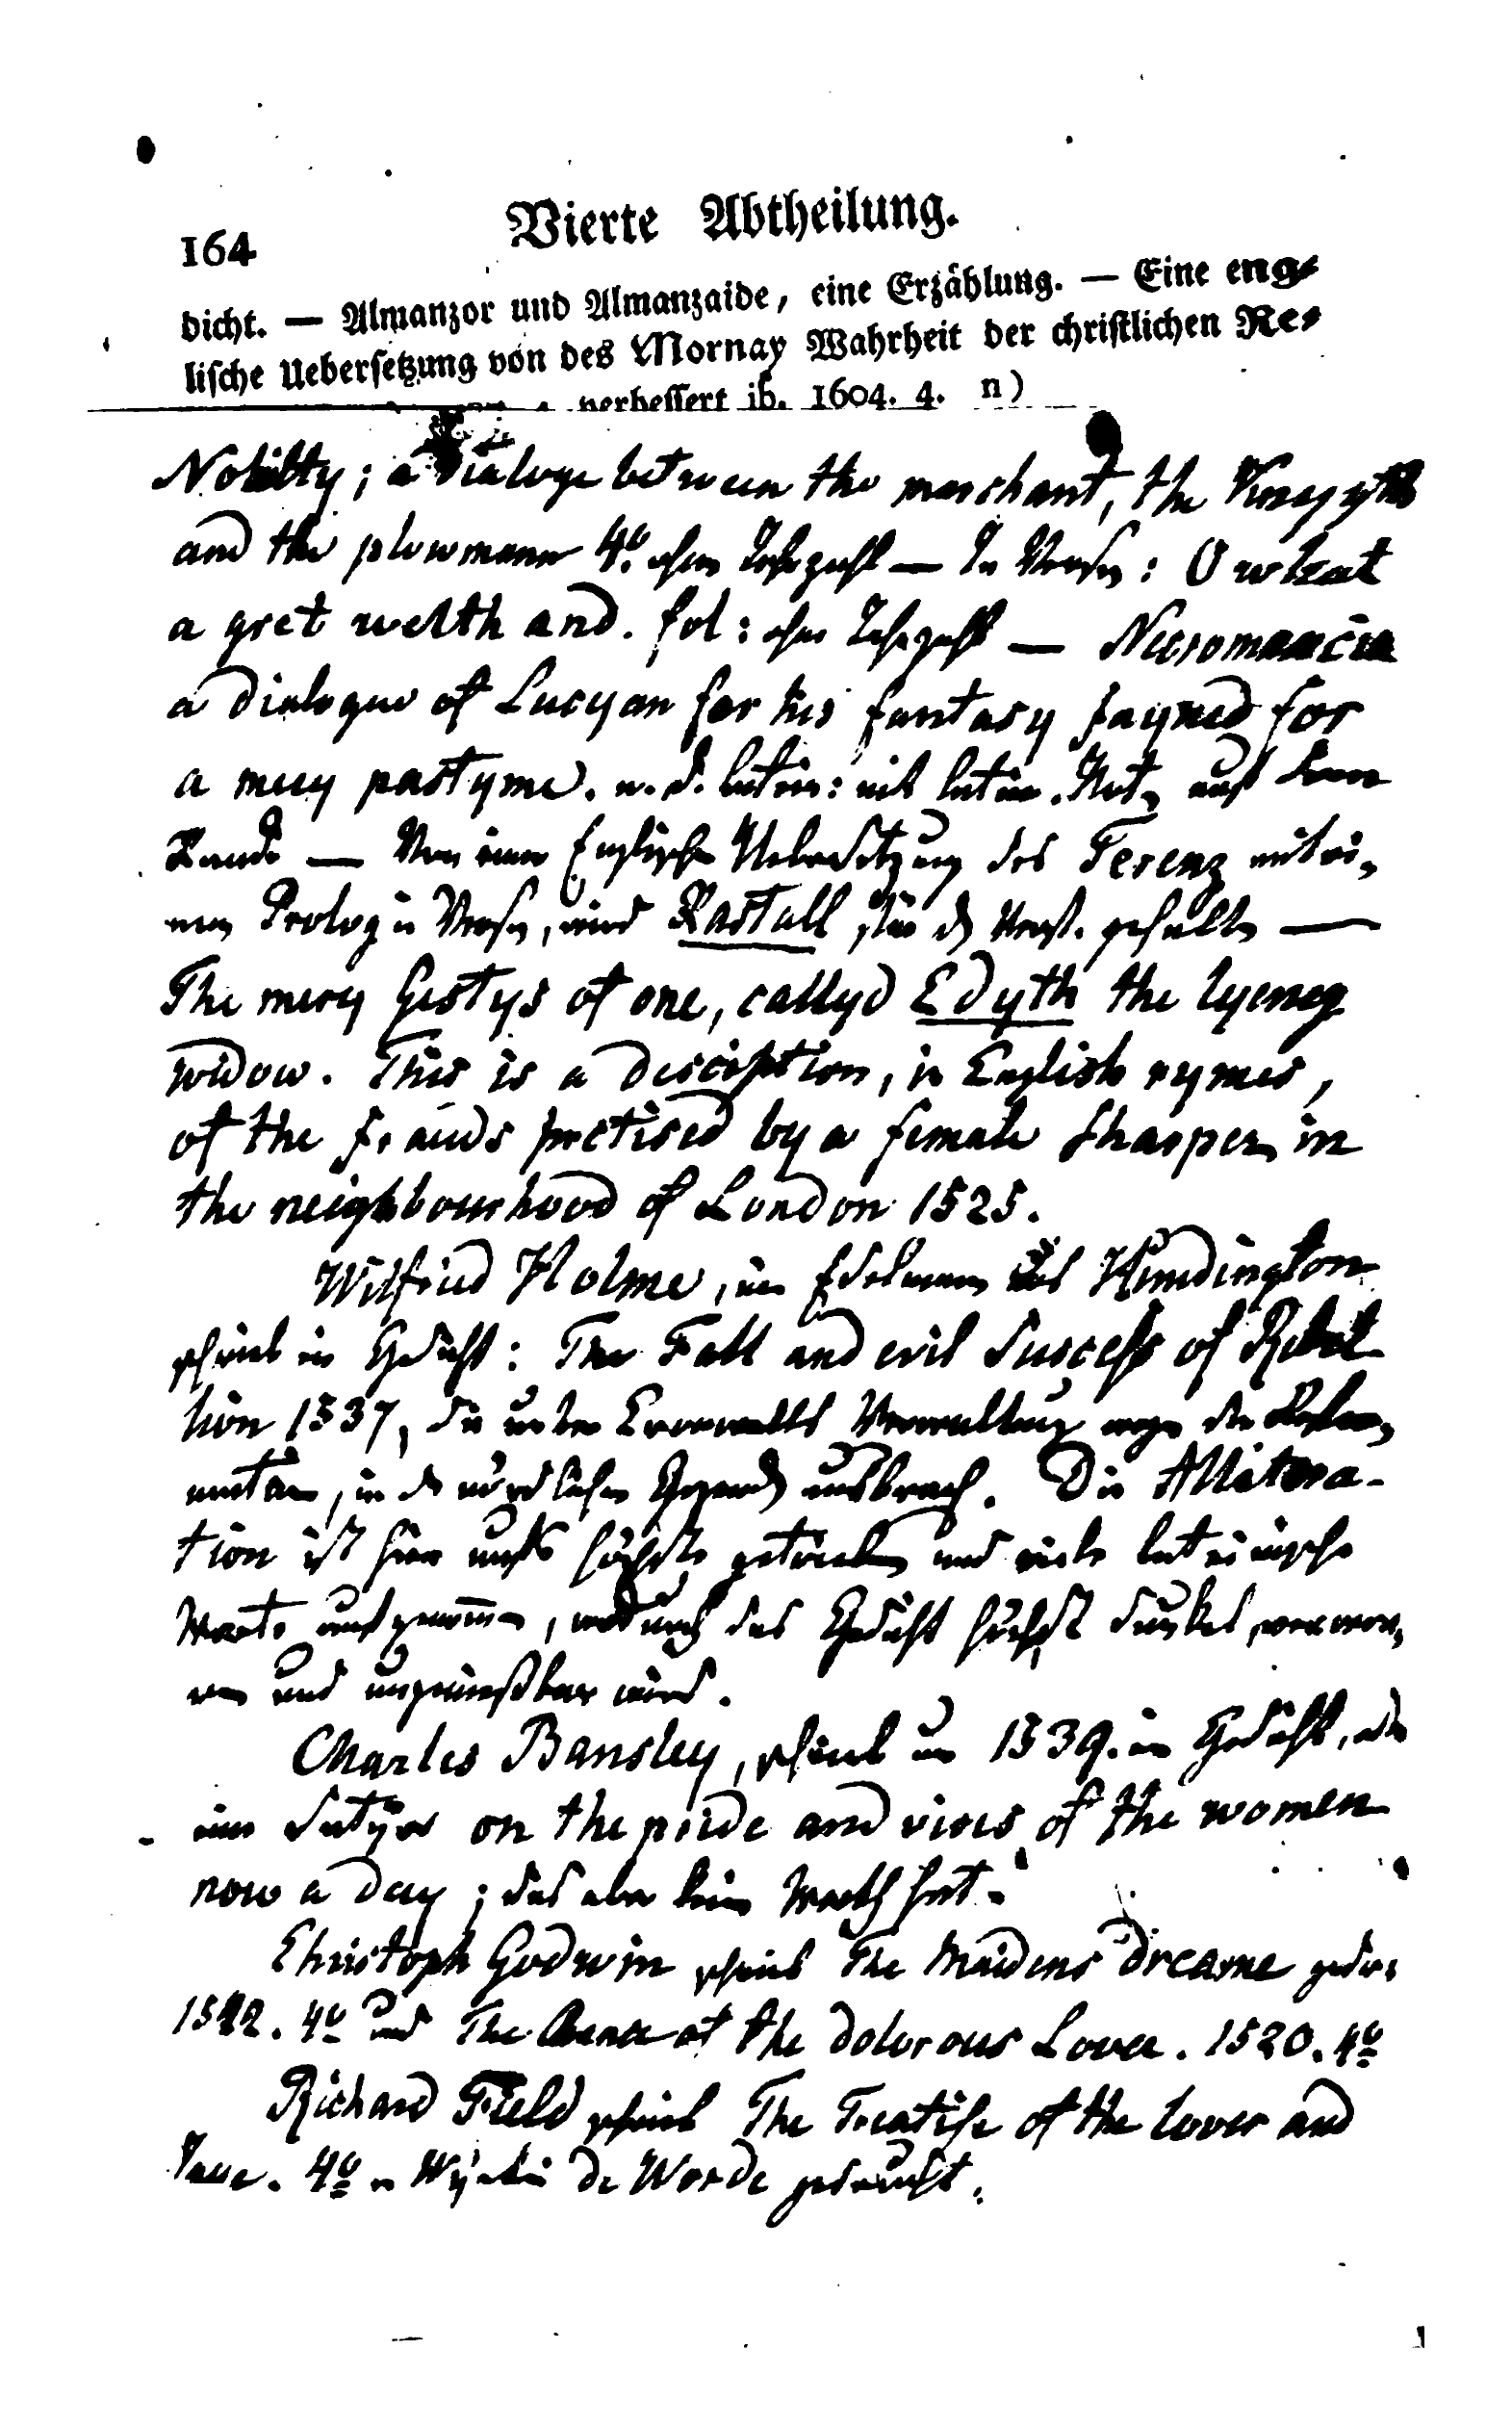 164 Vierte Abtheilung.
dicht. — Almanzor und Almanzaide, eine Erzählung. — Eine eng-
lische Uebersetzung von des Mornay Wahrheit der christlichen Re-
verbessert ib. 1604. 4. n)
Nobilty; a Dialoge between the marchant, the
and the plowmann 4º. ohne Jahrzahl — In Versen: O what
a gret welth and. fol: ohne Jahrzahl — Necromancia
a dialogue of Lucyan for his fantasy fayned for
a mery pastyme. u. d. latein: mit latein. Not. auf dem
Rande — Von einer Englischen Uebersetzung des Terenz mit ei-
nem Prolog in Versen, wird Rastall für den Verf. gehalten —
The mery Gestys of one, callyd Edyth the lyeing
widow. This is a discription, in English rymes,
of the frauds prctised by a female Sharper in
the neighbourhood of London 1525.
Wilfried Holme, ein Edelmann aus Hundington
schrieb ein Gedicht: The Fall and evil Success of Rebel
lion 1537, die unter Cromwells Verwaltung wegen der Refor-
mation, in den nördlichen Gegenden ausbrach. Die Allitera-
tion ist hier aufs höchste getrieben und viele lateinische
Worte aufgenommen, wodurch das Gedicht höchst dunkel, verwor-
ren und ungeniessbar wird.
Charles Bansley, schrieb um 1539. ein Gedicht, oder
eine Satyre on the pride and vices of the women
now a day; das aber kein Werth hat.
Christoph Godwin schrieb The Maidens dreame gedr.
4º und The of the dolorous Lover. 1520. 4º
Richard Field schrieb The Treatise of the lover and
Jaye. 4º v Wynkin de Worde gedruckt.